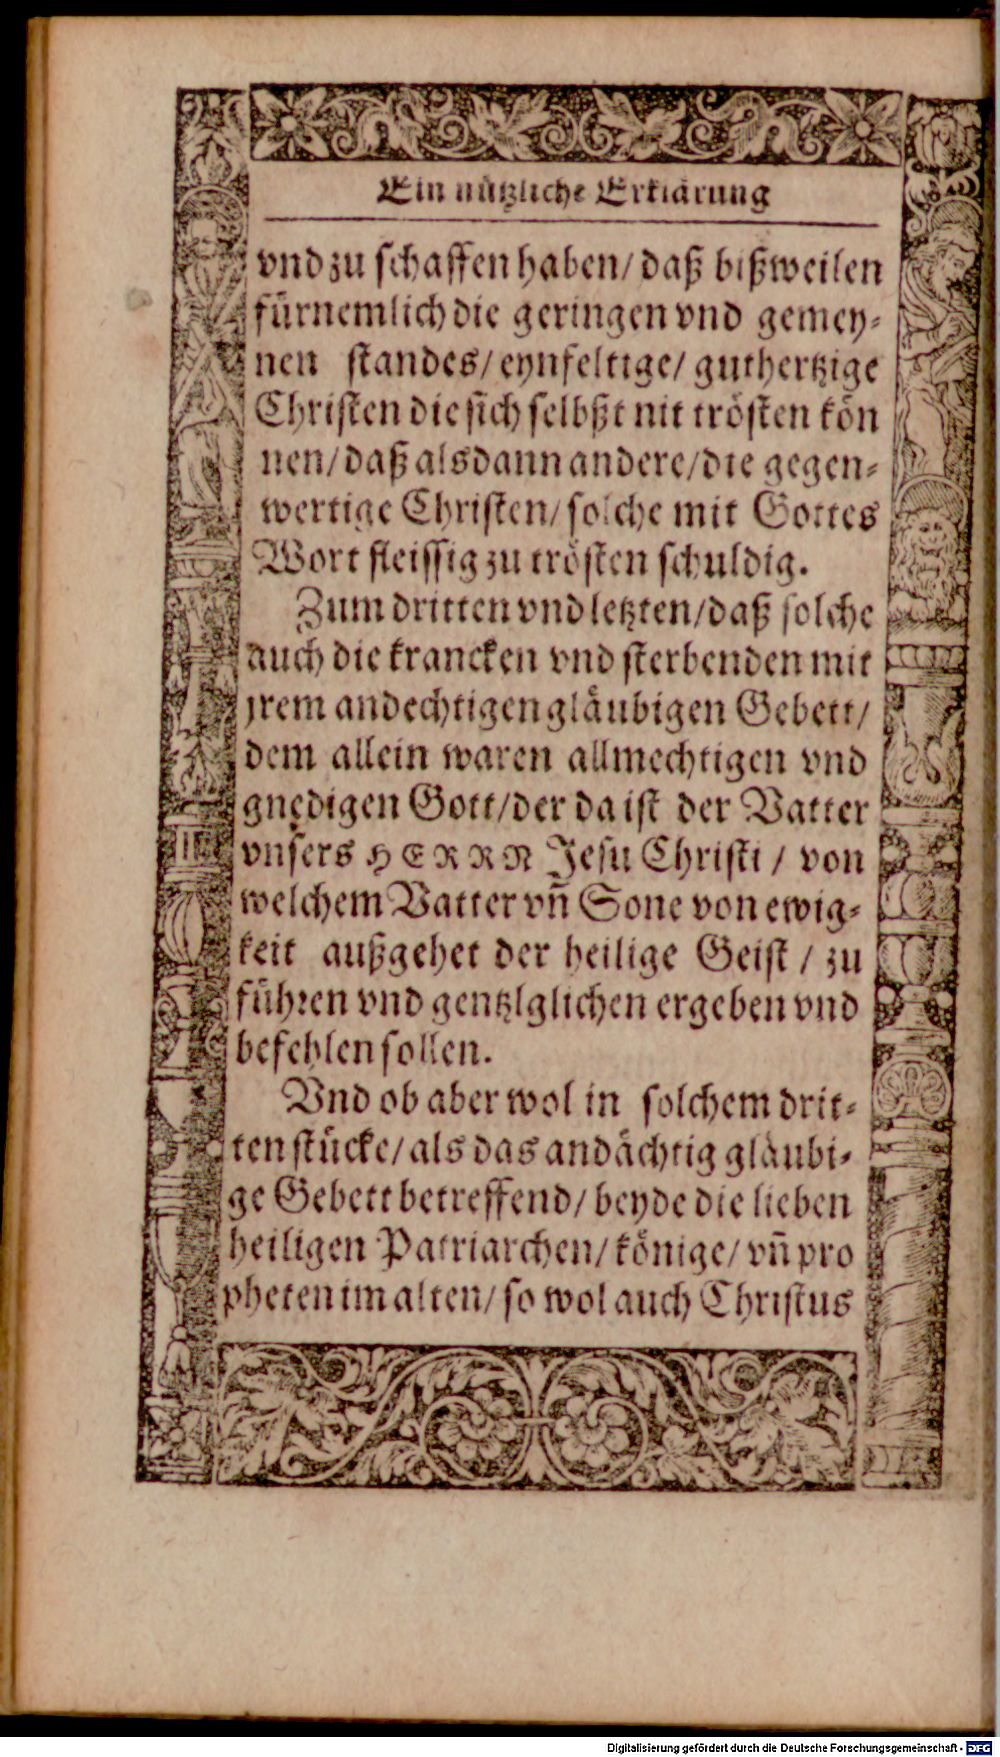 Ein nützliche Erklärung
vnd zu schaffen haben/ daß bißweilen
fürnemlich die geringen vnd gemey-
nen standes/ eynfeltige/ guthertzige
Christen die sich selbßt nit trösten kön
nen/ daß alsdann andere/ die gegen-
wertige Christen/ solche mit Gottes
Wort fleissig zu trösten schuldig.
Zum dritten vnd letzten/ daß solche
auch die krancken vnd sterbenden mit
jrem andechtigen gläubigen Gebett/
dem allein waren allmechtigen vnd
gnedigen Gott/ der da ist der Vatter
vnsers HERRN Jesu Christi / von
welchem Vatter vñ Sone von ewig-
keit außgehet der heilige Geist / zu
führen vnd gentzlglichen ergeben vnd
befehlen sollen.
Vnd ob aber wol in solchem drit-
ten stücke/ als das andächtig gläubi-
ge Gebett betreffend/ beyde die lieben
heiligen Patriarchen/ könige/ vñ pro
pheten im alten/ so wol auch Christus
Digitalisierung gefördert durch die Deutsche Forschungsgemeinschaft - DFG